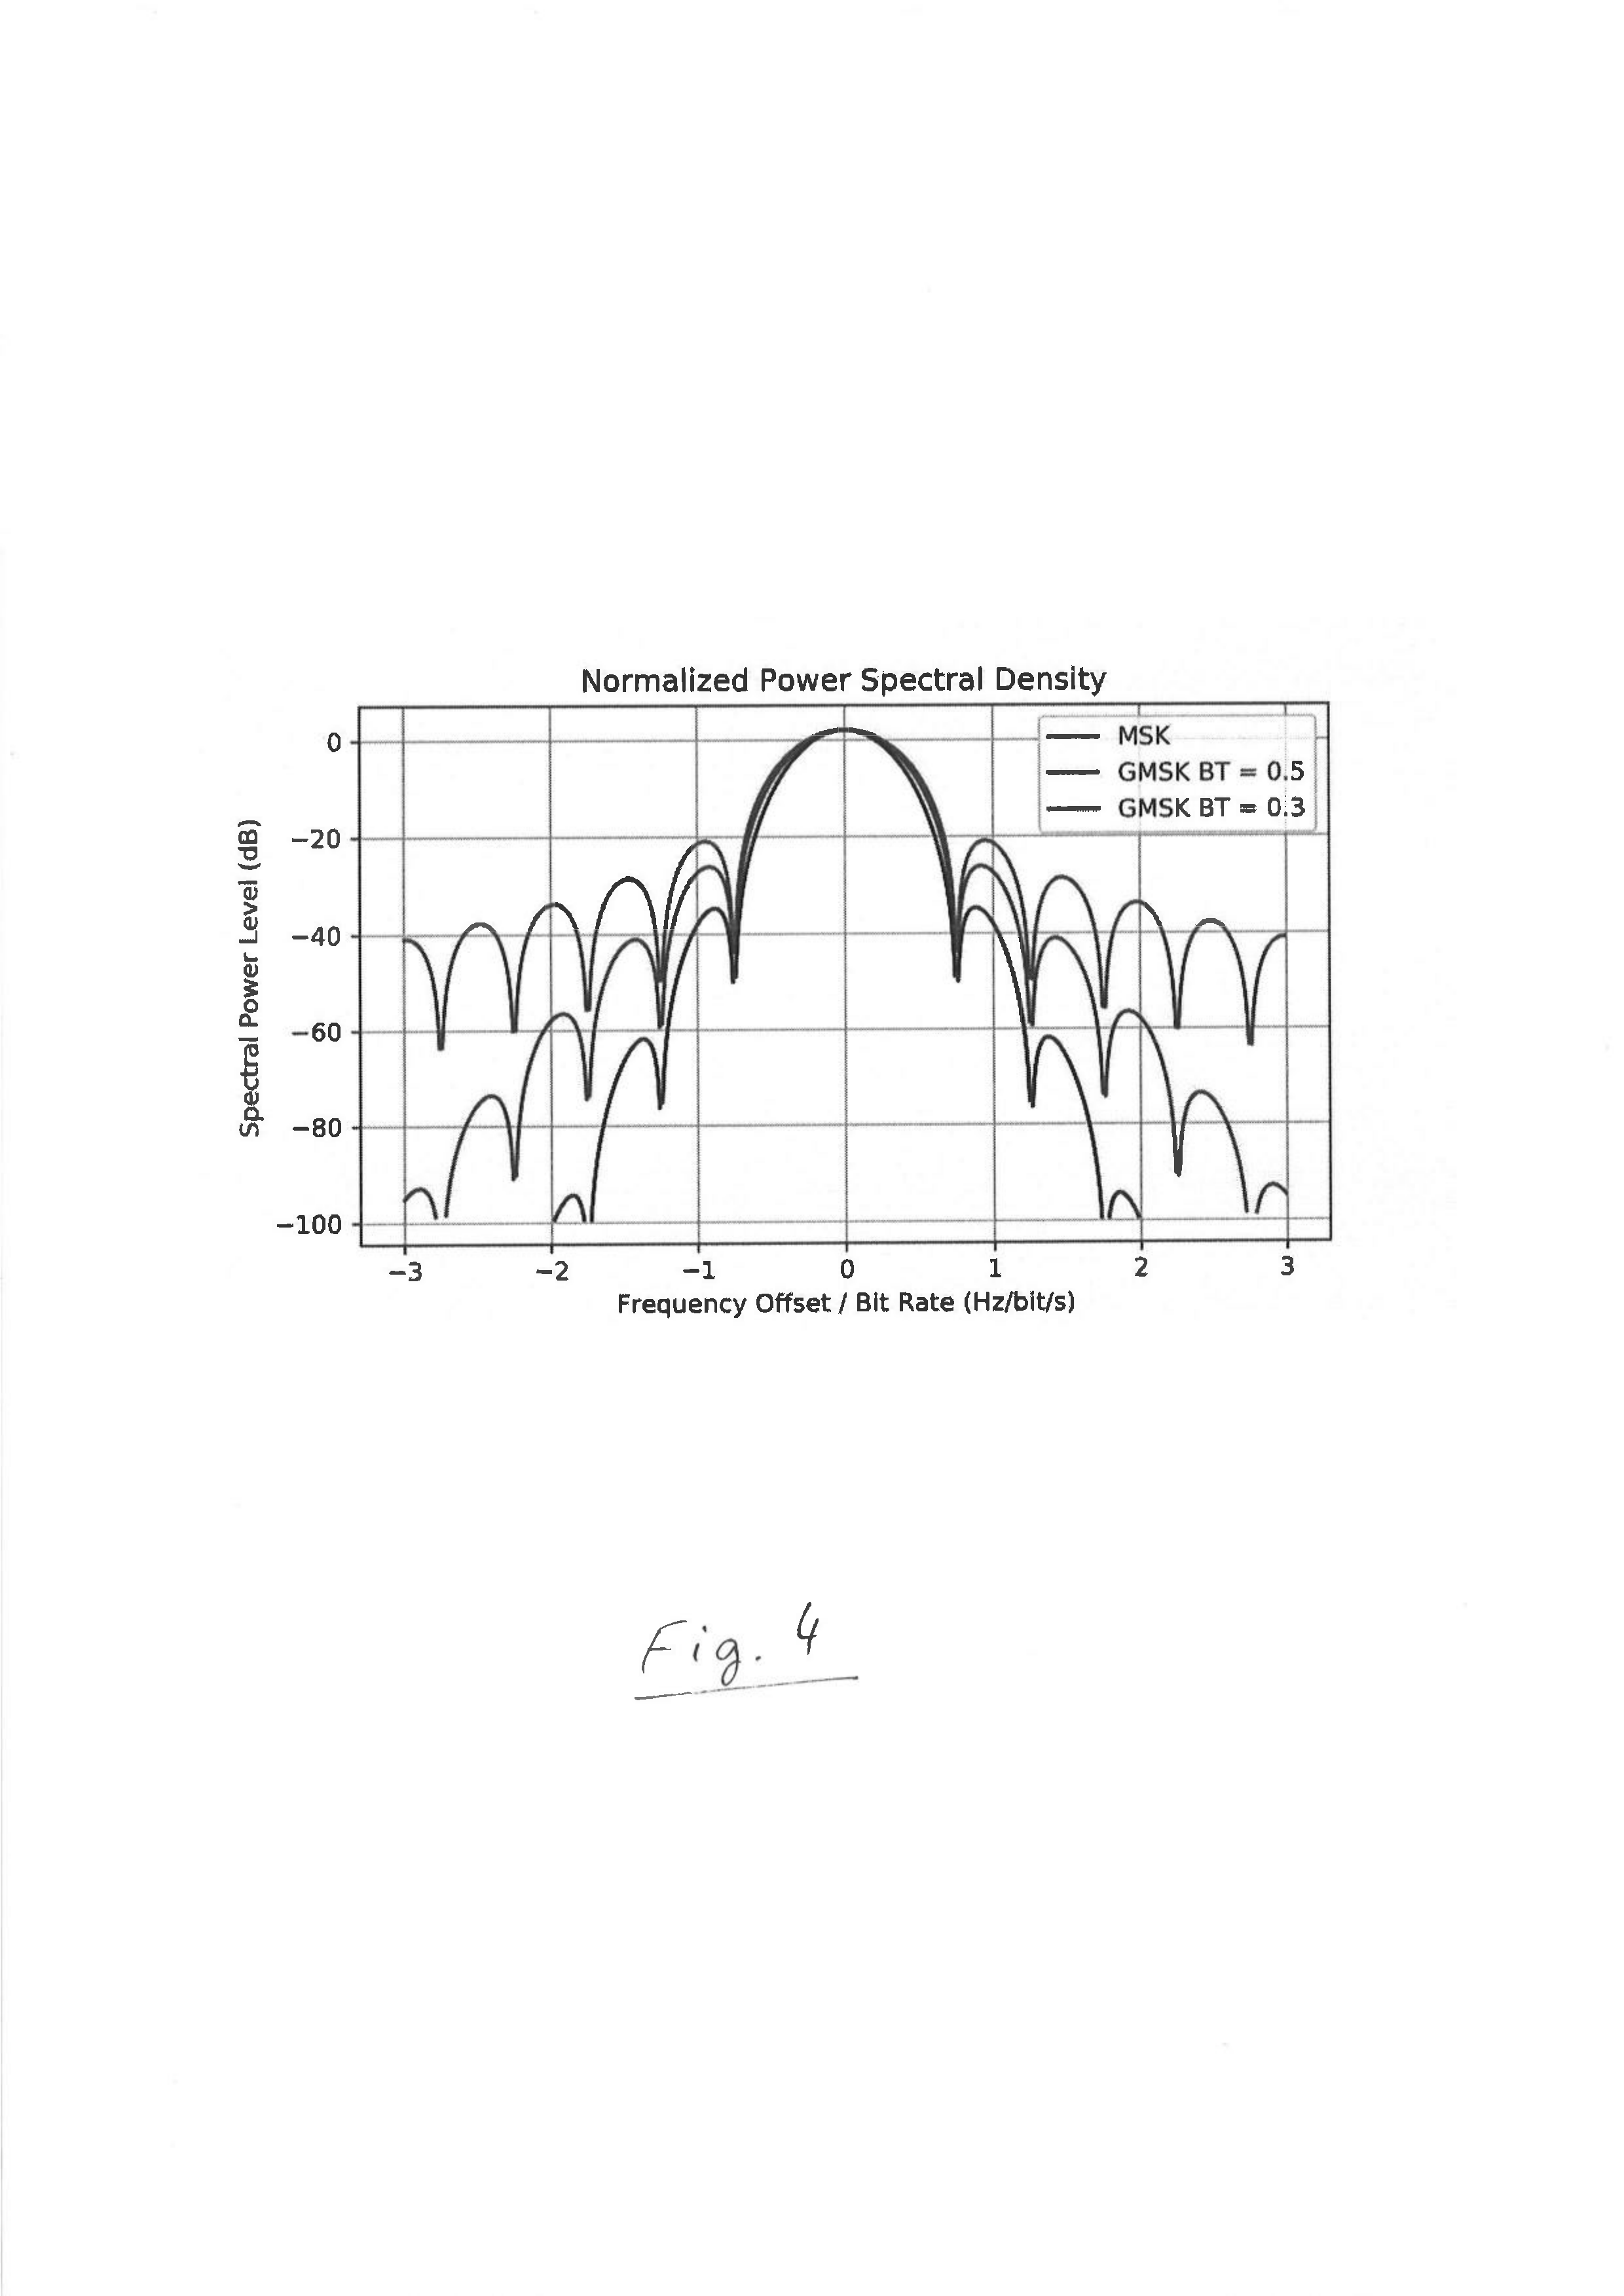 Normalized Power Spectral Density
MSK
GMSK BT = 0.5
GMSK BT = 0.3
Spectral Power Level (dB)
0
−20
−40
−60
−80
−100
−3
−2
−1
0
1
2
3
Frequency Offset / Bit Rate (Hz/bit/s)
Fig. 4